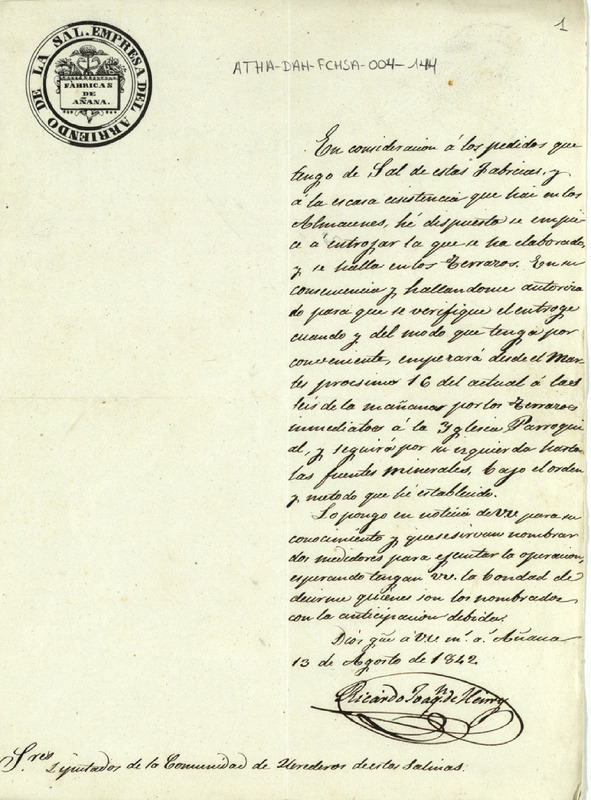 1
ATHA-DAH-FCHSA-004-144
EMPRESA DEL ARRIENDO DE LA SAL.
FÁBRICAS
DE
AÑANA.
En consideracion á los pedidos que
tengo de Sal de estas Fabricas, y
á la escasa ecsistencia que hai en los
Almacenes, hé dispuesto se empie-
ce á entrojar la que se ha elaborado,
y se halla en los Terrazos. En su
consecuencia y hallandome autoriza
do para que se verifique el entroge
cuando y del modo que tenga por
conveniente, empezará desde el Mar-
tes procsimo 16 del actual á las
seis de la mañana por los Terrazos
inmediatos á la Yglesia Parroqui
al, y seguirá por su izquierda hasta
las fuentes minerales, bajo el orden
y metodo que hé establecido.
Lo pongo en noticia de VV para su
conocimiento y que se sirvan nombrar
dos medidores para ejecutar la operacion,
esperando tengan VV. la bondad de
decirme quienes son los nombrados
con la anticipacion debida.
Dios gue á VV m.s a.s Añana
13 de Agosto de 1842
Ricardo Joaq.n de
S.res Diputados de la Comunidad de Herederos de estas Salinas.